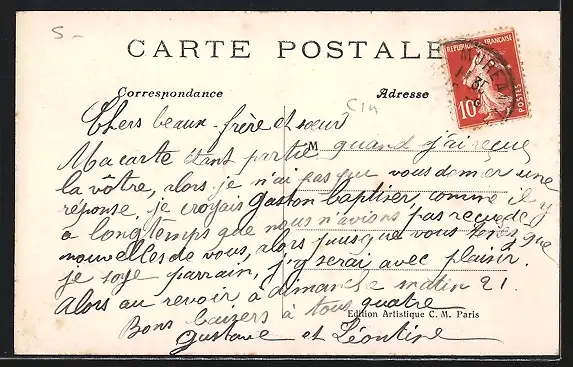 5-
CARTE POSTALE
RÉPUBLIQUE FRANÇAISE
10c
POSTES
MORET
Correspondance
Adresse
Chers beaux-frère et sœur
Ma carte étant partie quand j'ai reçu
M
la vôtre, alors je n'ai pas pu vous donner une
réponse, je croyais Gaston baptiser, comme il y
a longtemps que nous n'avions pas reçu de
nouvelles de vous, alors puisque vous tenez à que
je soye parrain, j'y serai avec plaisir.
Alors au revoir, à dimanche matin 21.
Bons baisers à tous quatre
Edition Artistique C. M. Paris
Gustave et Léontine